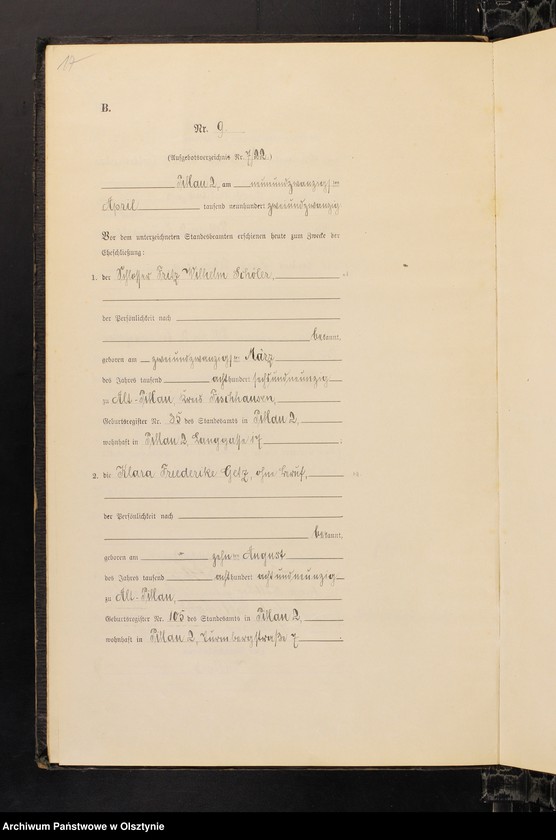 17
B.
Nr. 9
(Aufgebotsverzeichnis Nr. 7/22.)
Pillau 2, am neunundzwanzigsten
April tausend neunhundert zweiundzwanzig
Vor dem unterzeichneten Standesbeamten erschienen heute zum Zwecke der
Eheschließung:
1. der Schlosser Fritz Wilhelm Schöler,
der Persönlichkeit nach
bekannt,
geboren am zweiundzwanzigsten März
des Jahres tausend achthundert sechsundneunzig
zu Alt-Pillau, Kreis Fischhausen,
Geburtsregister Nr. 35 des Standesamts in Pillau 2,
wohnhaft in Pillau 2, Langgasse 17
2. die Klara Friederike Getz, ohne Beruf,
der Persönlichkeit nach
bekannt,
geboren am zehnten August
des Jahres tausend achthundert achtundneunzig
zu Alt-Pillau,
Geburtsregister Nr. 105 des Standesamts in Pillau 2,
wohnhaft in Pillau 2, 7
Archiwum Państwowe w Olsztynie